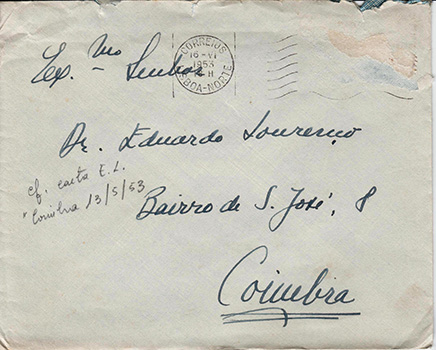 Ex.mo Senhor
CORREIOS
16-VI
1953
LISBOA-NORTE
Dr. Eduardo Lourenço
cf. carta E.L.
Coimbra 13/5/53
Bairro de S. José, 8
Coimbra